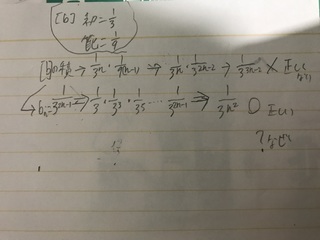 [b] 初=1/3
比=1/9
1/3^n · 1/9^(n-1) → 1/3^n · 1/3^(2n-2) → 1/3^(3n-2) × 正しくない
b_n=1/3^(2n-1) → 1/3 · 1/3^3 · 1/3^5 ····· 1/3^(2n-1) ⇒ 1/3^(n^2) ○ 正しい
?なぜ
!?